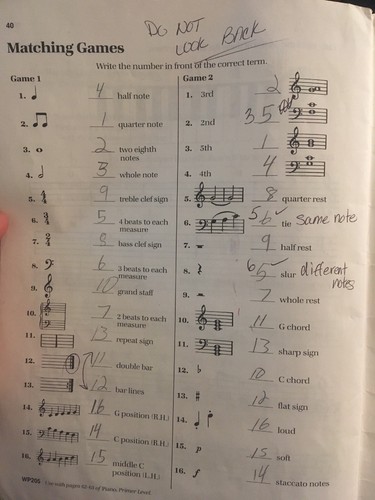 40
DO NOT
LOOK BACK
Matching Games
Write the number in front of the correct term.
Game 1
1. 4 half note
2. 1 quarter note
3. 2 two eighth notes
4. 3 whole note
5. 9 treble clef sign
6. 5 4 beats to each measure
7. 8 bass clef sign
8. 6 3 beats to each measure
9. 10 grand staff
10. 7 2 beats to each measure
11. 13 repeat sign
12. 11 double bar
13. 12 bar lines
14. 16 G position (R.H.)
15. 14 C position (R.H.)
16. 15 middle C position (R.H.)
WP205 Use with pages 60-61 of Piano, Primer Level.
Game 2
1. 3rd 2
2. 2nd 3 5
3. 5th 1
4. 4th 4
5. 8 quarter rest
6. 5 6 tie Same note
7. 9 half rest
8. 6 5 slur different notes
9. 7 whole rest
10. 11 G chord
11. 13 sharp sign
12. ♭ 10 C chord
13. # 12 flat sign
14. 16 loud
15. p 15 soft
16. f 14 staccato notes